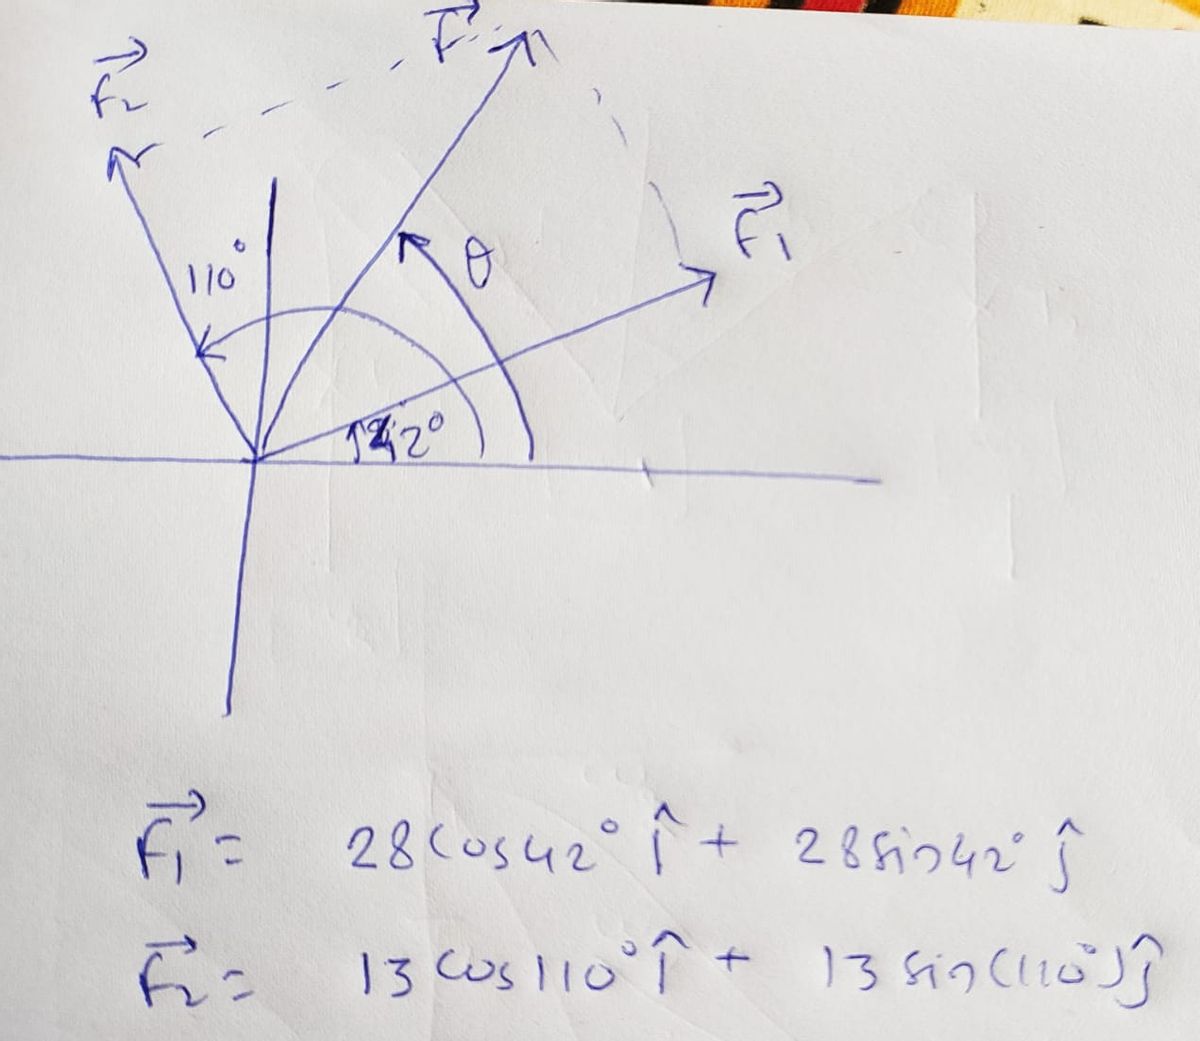 F⃗
F⃗₂
F⃗₁
110°
θ
42°
F⃗₁ = 28cos42° î + 28sin42° ĵ
F⃗₂ = 13cos110° î + 13 sin(110°)ĵ